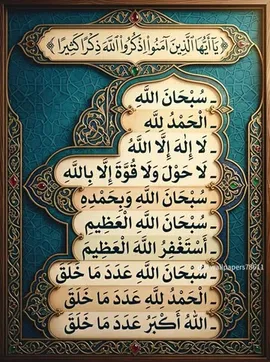 ﴿ يَا أَيُّهَا الَّذِينَ آمَنُوا اذْكُرُوا اللَّهَ ذِكْرًا كَثِيرًا ﴾
- سُبْحَانَ اللَّهِ
- الْحَمْدُ لِلَّهِ
- لَا إِلَهَ إِلَّا اللَّهُ
- لَا حَوْلَ وَلَا قُوَّةَ إِلَّا بِاللَّهِ
- سُبْحَانَ اللَّهِ وَبِحَمْدِهِ
- سُبْحَانَ اللَّهِ الْعَظِيمِ
- أَسْتَغْفِرُ اللَّهَ الْعَظِيمَ
- سُبْحَانَ اللَّهِ عَدَدَ مَا خَلَقَ
- الْحَمْدُ لِلَّهِ عَدَدَ مَا خَلَقَ
- اللَّهُ أَكْبَرُ عَدَدَ مَا خَلَقَ